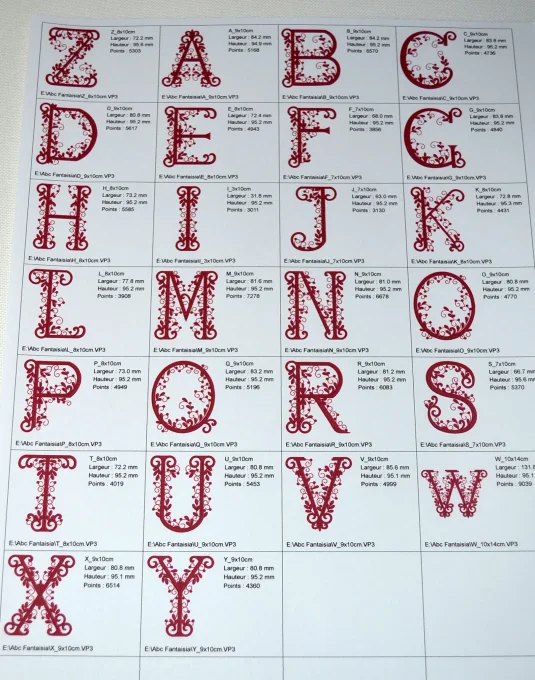 Z
Z_8x10cm
Largeur : 72.2 mm
Hauteur : 95.5 mm
Points : 5303
E:\Abc Fantaisia\Z_8x10cm.VP3
A
A_9x10cm
Largeur : 84.2 mm
Hauteur : 94.9 mm
Points : 5168
E:\Abc Fantaisia\A_9x10cm.VP3
B
B_9x10cm
Largeur : 84.2 mm
Hauteur : 95.2 mm
Points : 6570
E:\Abc Fantaisia\B_9x10cm.VP3
C
C_9x10cm
Largeur : 83.8 mm
Hauteur : 95.2 mm
Points : 4736
E:\Abc Fantaisia\C_9x10cm.VP3
D
D_9x10cm
Largeur : 80.8 mm
Hauteur : 95.2 mm
Points : 5617
E:\Abc Fantaisia\D_9x10cm.VP3
E
E_8x10cm
Largeur : 72.4 mm
Hauteur : 95.2 mm
Points : 4943
E:\Abc Fantaisia\E_8x10cm.VP3
F
F_7x10cm
Largeur : 68.0 mm
Hauteur : 95.2 mm
Points : 3856
E:\Abc Fantaisia\F_7x10cm.VP3
G
G_9x10cm
Largeur : 83.8 mm
Hauteur : 95.2 mm
Points : 4840
E:\Abc Fantaisia\G_9x10cm.VP3
H
H_8x10cm
Largeur : 73.2 mm
Hauteur : 95.2 mm
Points : 5585
E:\Abc Fantaisia\H_8x10cm.VP3
I
I_3x10cm
Largeur : 31.8 mm
Hauteur : 95.2 mm
Points : 3011
E:\Abc Fantaisia\I_3x10cm.VP3
J
J_7x10cm
Largeur : 63.0 mm
Hauteur : 95.2 mm
Points : 3130
E:\Abc Fantaisia\J_7x10cm.VP3
K
K_8x10cm
Largeur : 72.8 mm
Hauteur : 95.3 mm
Points : 4431
E:\Abc Fantaisia\K_8x10cm.VP3
L
L_8x10cm
Largeur : 77.8 mm
Hauteur : 95.2 mm
Points : 3908
E:\Abc Fantaisia\L_8x10cm.VP3
M
M_9x10cm
Largeur : 81.6 mm
Hauteur : 95.2 mm
Points : 7278
E:\Abc Fantaisia\M_9x10cm.VP3
N
N_9x10cm
Largeur : 81.0 mm
Hauteur : 95.2 mm
Points : 6678
E:\Abc Fantaisia\N_9x10cm.VP3
O
O_9x10cm
Largeur : 80.8 mm
Hauteur : 95.2 mm
Points : 4770
E:\Abc Fantaisia\O_9x10cm.VP3
P
P_8x10cm
Largeur : 73.0 mm
Hauteur : 95.2 mm
Points : 4949
E:\Abc Fantaisia\P_8x10cm.VP3
Q
Q_9x10cm
Largeur : 83.2 mm
Hauteur : 95.2 mm
Points : 5196
E:\Abc Fantaisia\Q_9x10cm.VP3
R
R_9x10cm
Largeur : 81.2 mm
Hauteur : 95.2 mm
Points : 6083
E:\Abc Fantaisia\R_9x10cm.VP3
S
S_7x10cm
Largeur : 66.7 mm
Hauteur : 95.6 mm
Points : 5370
E:\Abc Fantaisia\S_7x10cm.VP3
T
T_8x10cm
Largeur : 72.2 mm
Hauteur : 95.2 mm
Points : 4019
E:\Abc Fantaisia\T_8x10cm.VP3
U
U_9x10cm
Largeur : 80.8 mm
Hauteur : 95.2 mm
Points : 5453
E:\Abc Fantaisia\U_9x10cm.VP3
V
V_9x10cm
Largeur : 85.6 mm
Hauteur : 95.1 mm
Points : 4999
E:\Abc Fantaisia\V_9x10cm.VP3
W
W_10x14cm
Largeur : 131.8
Hauteur : 95.1
Points : 9039
E:\Abc Fantaisia\W_10x14cm.VP3
X
X_9x10cm
Largeur : 80.8 mm
Hauteur : 95.1 mm
Points : 6514
E:\Abc Fantaisia\X_9x10cm.VP3
Y
Y_9x10cm
Largeur : 80.8 mm
Hauteur : 95.2 mm
Points : 4360
E:\Abc Fantaisia\Y_9x10cm.VP3